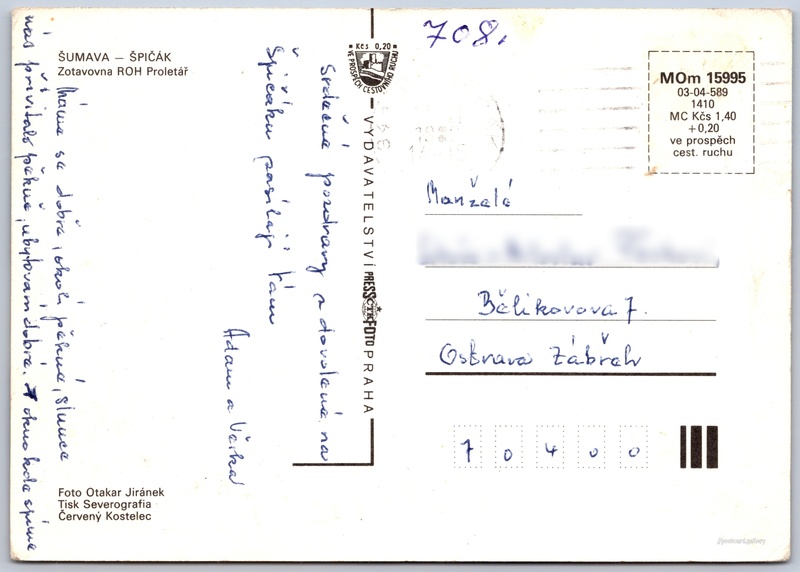 ŠUMAVA — ŠPIČÁK
Zotavovna ROH Proletář
Srdečné pozdravy z dovolené na
Špičáku posílají Vám
Adam a Věrka
Máme se dobře, okolí pěkné, slunce
nás přivítalo pěkně, ubytování dobré.
Foto Otakar Jiránek
Tisk Severografia
Červený Kostelec
Kčs 0,20
VE PROSPĚCH CESTOVNÍHO RUCHU
VYDAVATELSTVÍ PRESSFOTO PRAHA
ČTK
708.
MOm 15995
03-04-589
1410
MC Kčs 1,40
+0,20
ve prospěch
cest. ruchu
Manželé
Bělikovova 7.
Ostrava Zábřeh
70400